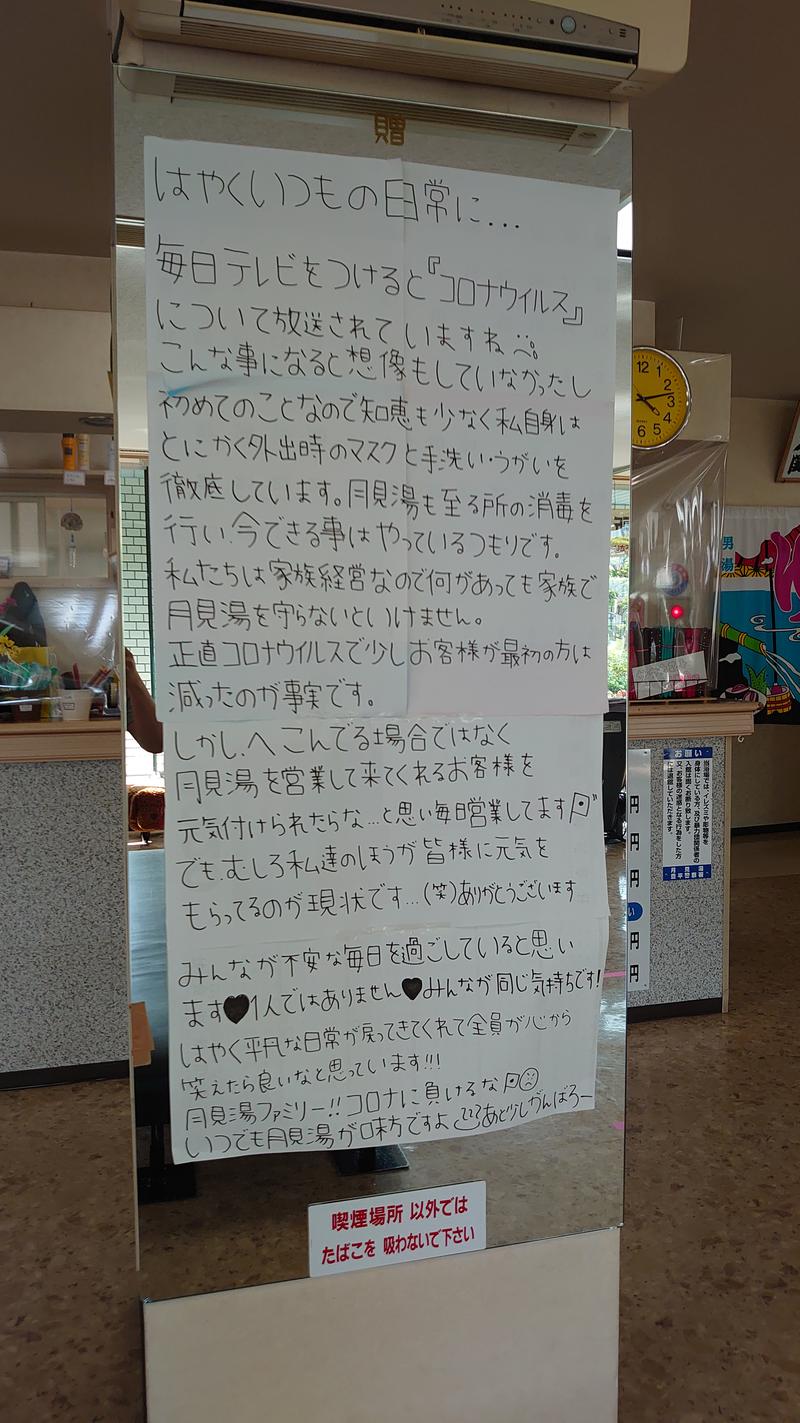 贈
はやくいつもの日常に...
毎日テレビをつけると『コロナウイルス』
について放送されていますね
こんな事になると想像もしていなかったし
初めてのことなので知恵も少なく私自身は
とにかく外出時のマスクと手洗い・うがいを
徹底しています。月見湯も至る所の消毒を
行い、今できる事はやっているつもりです。
私たちは家族経営なので何があっても家族で
月見湯を守らないといけません。
正直コロナウイルスで少しお客様が最初の方は
減ったのが事実です。
しかし、へこんでる場合ではなく
月見湯を営業して来てくれるお客様を
元気付けられたらな...と思い毎日営業してます
でも、むしろ私達のほうが皆様に元気を
もらってるのが現状です...(笑)ありがとうございます
みんなが不安な毎日を過ごしていると思い
ます♥1人ではありません♥みんなが同じ気持ちです!
はやく平凡な日常が戻ってきてくれて全員が心から
笑えたら良いなと思っています!!!
月見湯ファミリー!!コロナに負けるな
いつでも月見湯が味方ですよ あと少しがんばろー
喫煙場所 以外では
たばこを 吸わないで下さい
12
1
2
3
4
5
6
男
湯
お願い
当浴場では、イレズミや彫物等を
身体にしている方、及び暴力団関係者の
入館は固くお断り致します。
又、お客様の迷惑となる行為をした方
には退館していただきます。
円
円
円
い
円
円